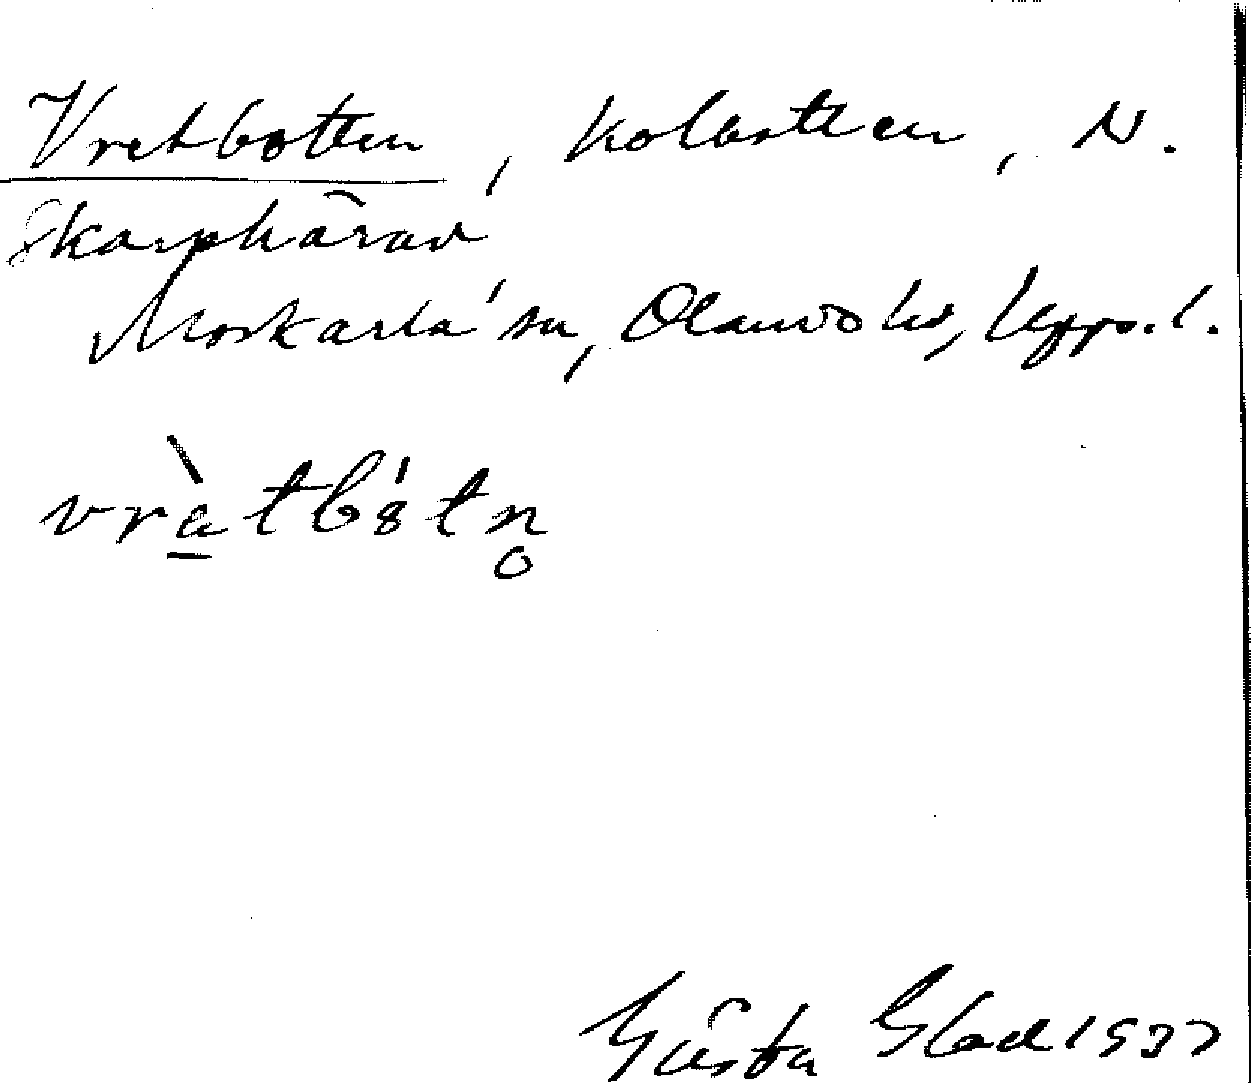 Vretbotten, kolbotten, N.
Skarphärad
Morkarla sn, Olands hd, Uppl.
vràtbótn̥
Gösta Blad 1937